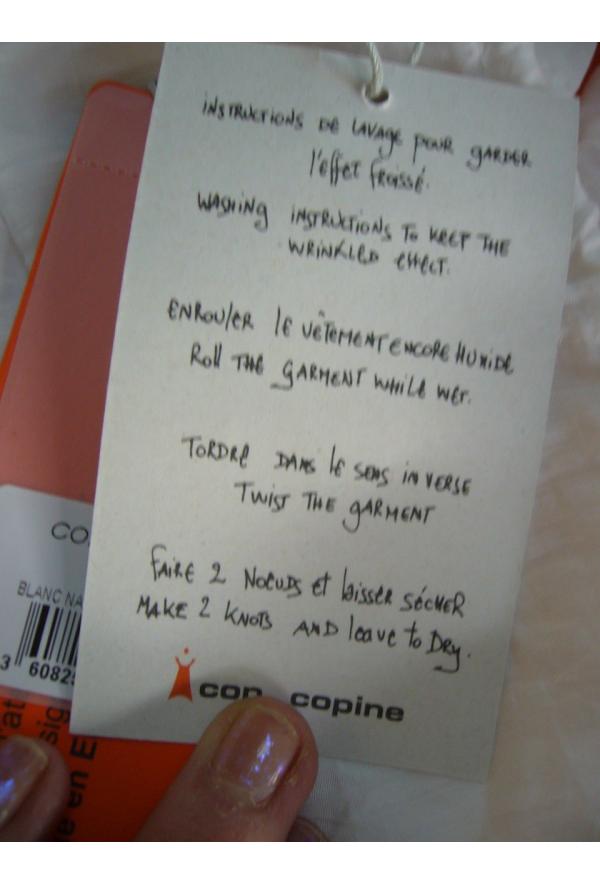 INSTRUCTIONS DE LAVAGE POUR GARDER
l'effet froissé.
WASHING INSTRUCTIONS TO KEEP THE
WRINKLED EFFECT.
ENROULER LE VÊTEMENT ENCORE HUMIDE
Roll THE GARMENT WHILE WET.
TORDRE DANS LE SENS INVERSE
TWIST THE GARMENT
FAIRE 2 NOEUDS et laisser SÉCHER
MAKE 2 KNOTS AND leave to DRY.
icon copine
CO
BLANC NA
3 60825